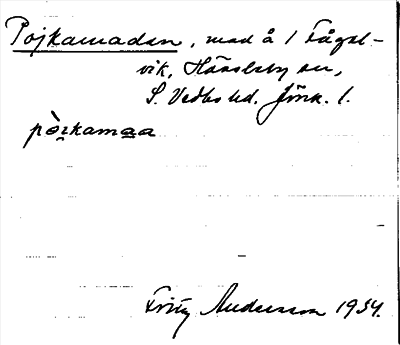 Pojkamadan, mad å 1 Fågel-
vik, Hässleby sn,
S. Vedbo hd. Jönk. l.
pòi̯kamaa
Fritz Andersson 1934.